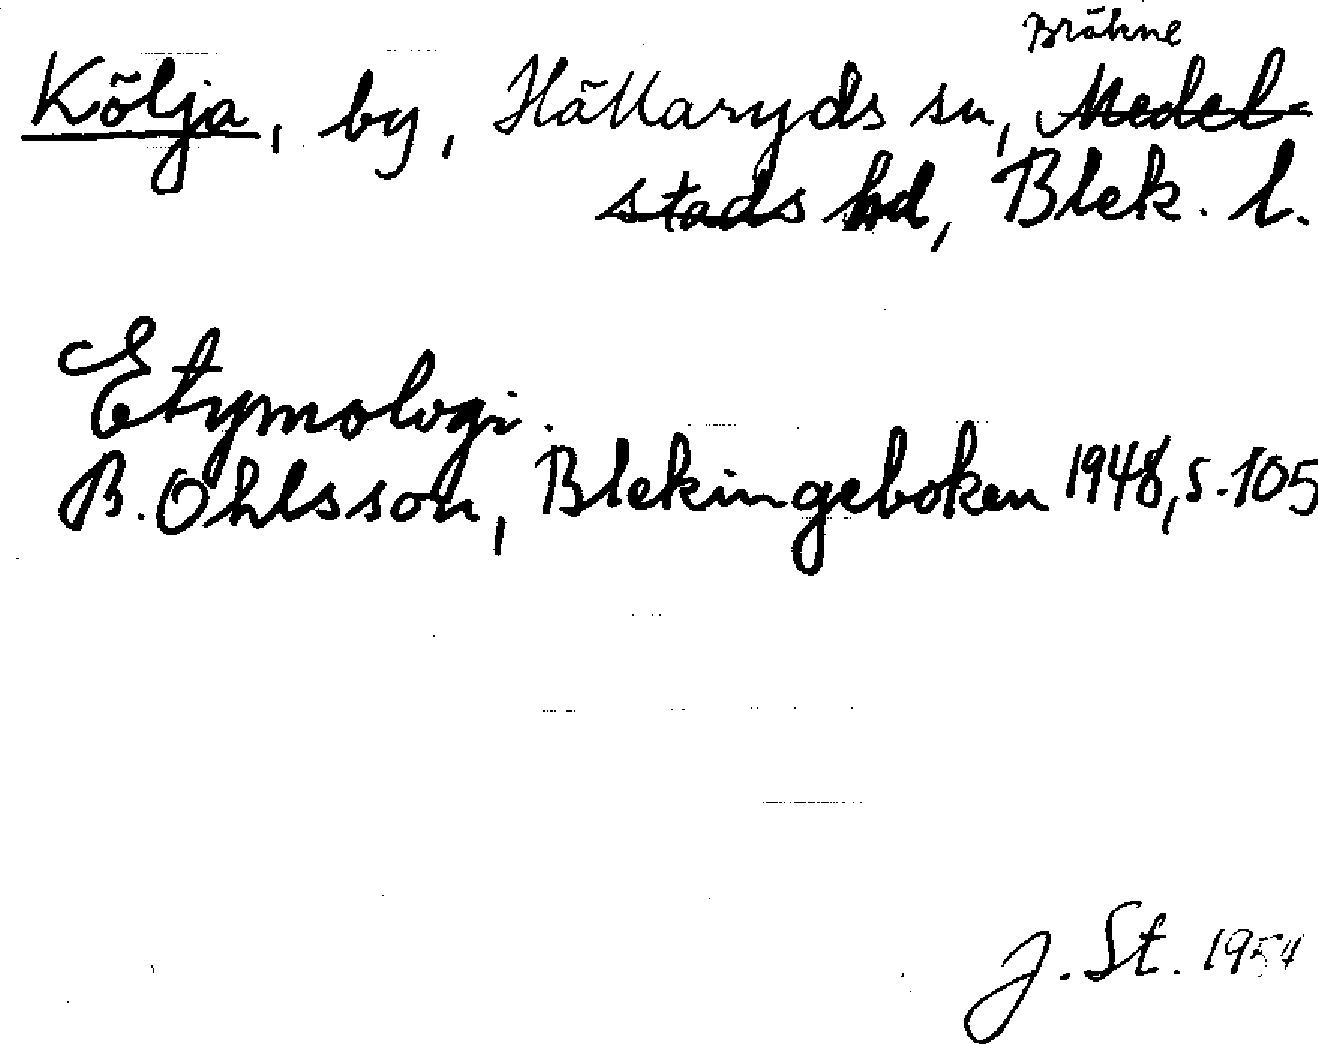 Bräkne
Kölja, by, Hällaryds sn, Medel-
stads hd, Blek. l.
Etymologi.
B. Ohlsson, Blekingeboken 1948, s. 105
J. St. 1954